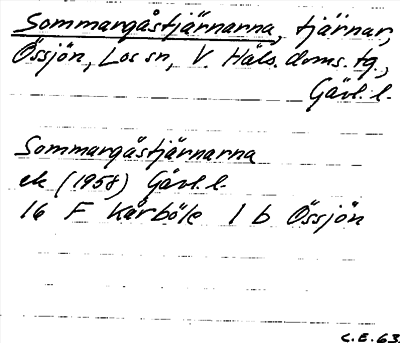 Sommargåstjärnarna, tjärnar,
Össjön, Los sn, V. Häls. doms. tg.,
Gävl. l.
Sommargåstjärnarna
ek (1958) Gävl. l.
16 F Kårböle 1 b Össjön
C.E. 63.